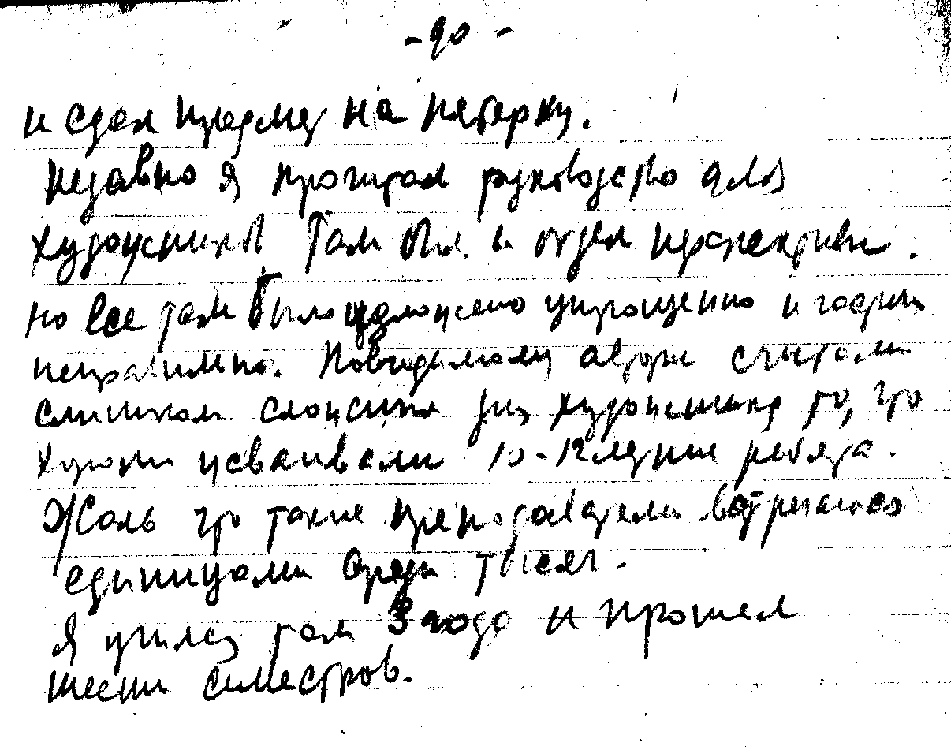 - 90 -
и сдал предмет на пятерку.
Недавно я прочитал руководство для
художников Там был и отдел перспективы.
но все там было изложено упрощенно и
неправильно. Повидимому авторы считали
слишком сложным для художника то, что
усваивали 10-12 летние ребята.
Жаль что такие преподаватели встречались
единицами среди тысяч.
Я учился там 3 года и прошел
шесть семестров.